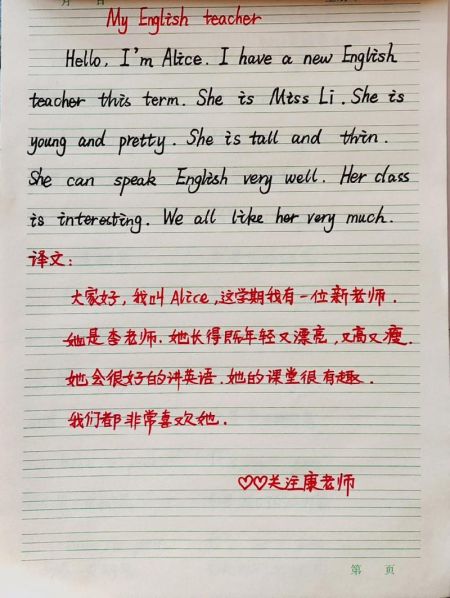 月 日
My English teacher
Hello, I'm Alice. I have a new English
teacher this term. She is Miss Li. She is
young and pretty. She is tall and thin.
She can speak English very well. Her class
is interesting. We all like her very much.
译文:
大家好,我叫Alice,这学期我有一位新老师.
她是李老师.她长得既年轻又漂亮,又高又瘦.
她会很好的讲英语.她的课堂很有趣.
我们都非常喜欢她.
♡♡关注康老师
第 页